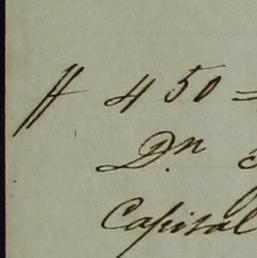 # 450=
Dn
Capital